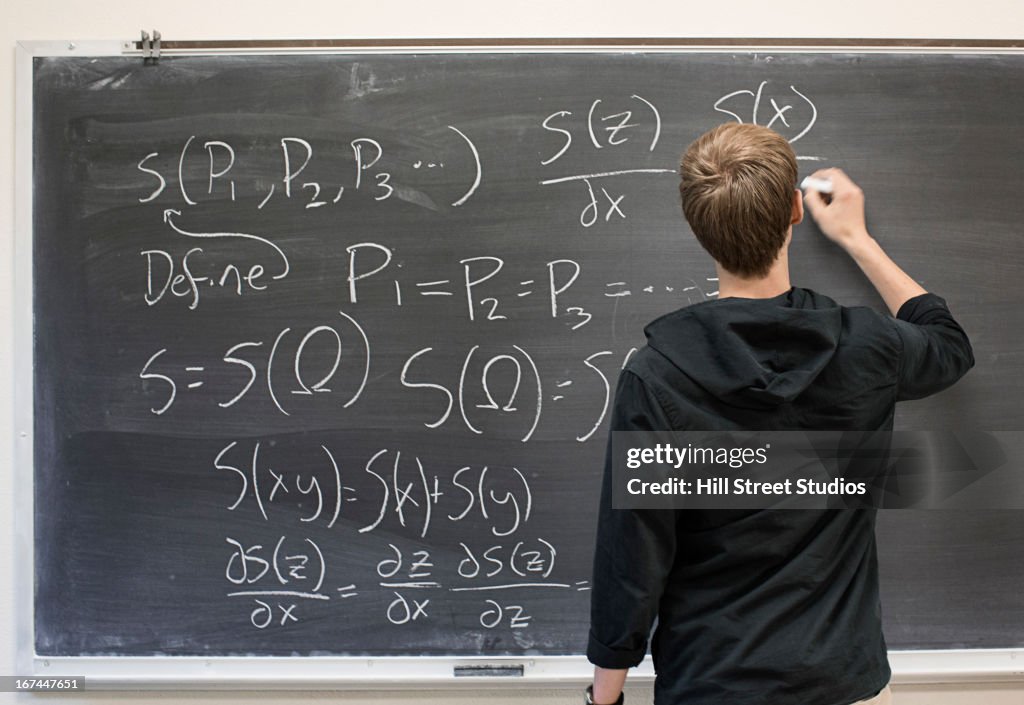 S(P₁, P₂, P₃ ...)
S(z)/∂x S(x)
Define
Pi = P₂ = P₃ = ... =
S = S(Ω) S(Ω) = S
S(xy) = S(x) + S(y)
∂S(z)/∂x = ∂z/∂x ∂S(z)/∂z =
gettyimages®
Credit: Hill Street Studios
167447651